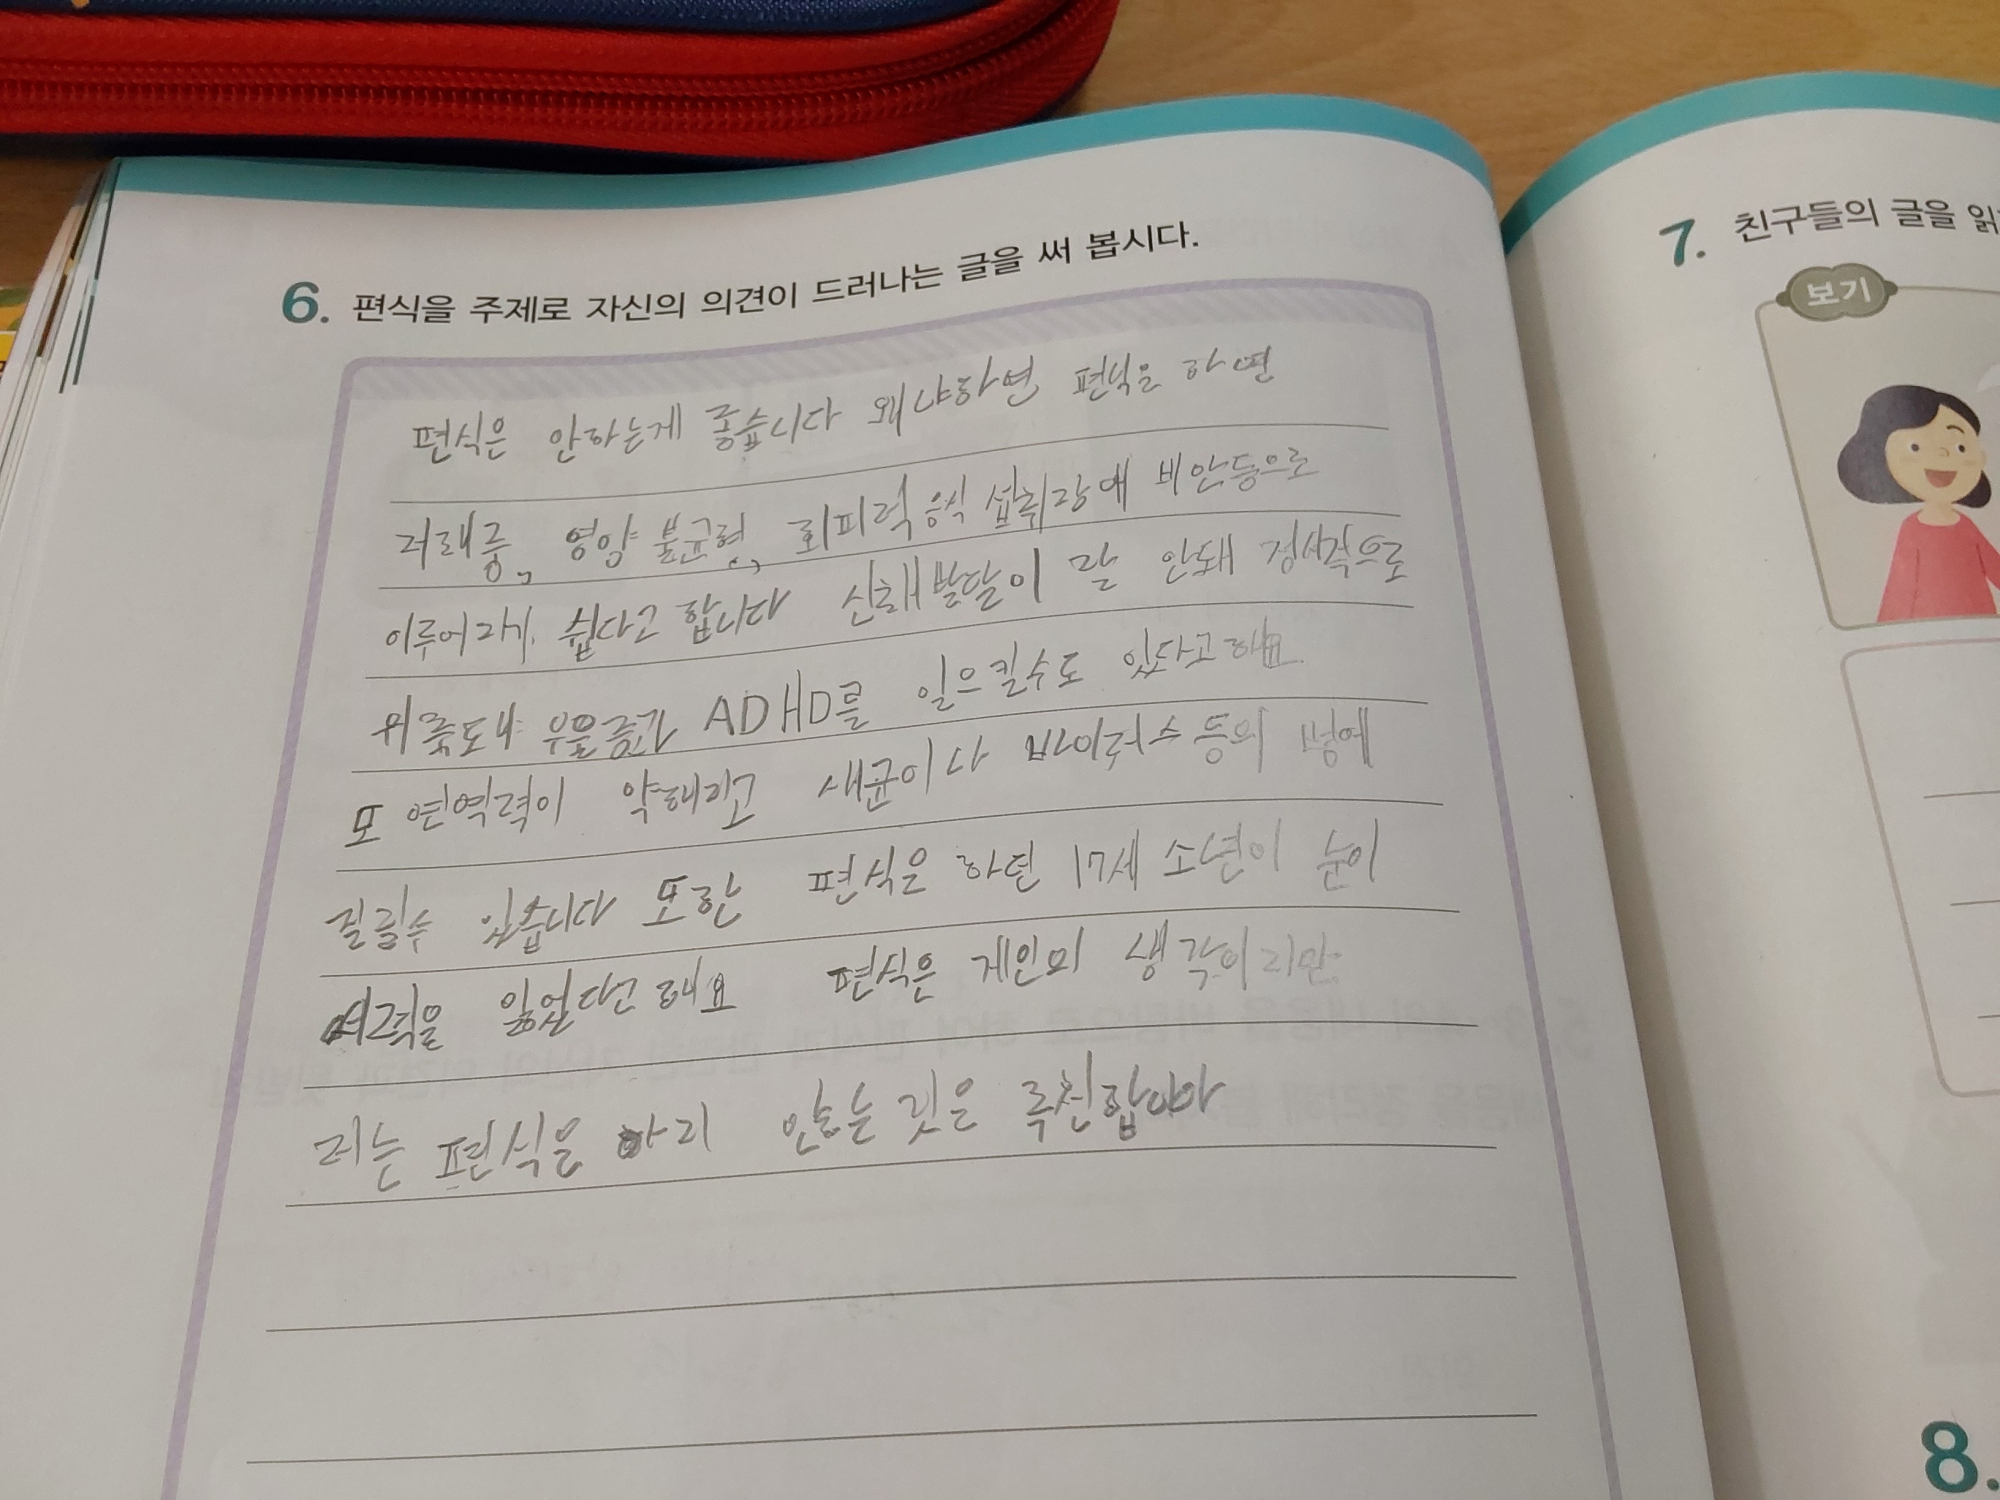 6. 편식을 주제로 자신의 의견이 드러나는 글을 써 봅시다.
편식은 안하는게 좋습니다 왜냐하면 편식을 하면
저체중, 영양 불균형, 회피적 음식 섭취장애 비만등으로
이루어지기 쉽다고 합니다 신체발달이 잘 안돼 정서적으로
우울금과 ADHD를 일으킬수도 있다고해요
또 면역력이 약해지고 세균이나 바이러스 등의 병에
걸릴수 있습니다 또한 편식은 하던 17세 소년이 눈이
시력을 잃었다고 해요 편식은 개인의 생각이지만
저는 편식을 하지 않는 것은 추천합니다
7. 친구들의 글을 읽
보기
8.